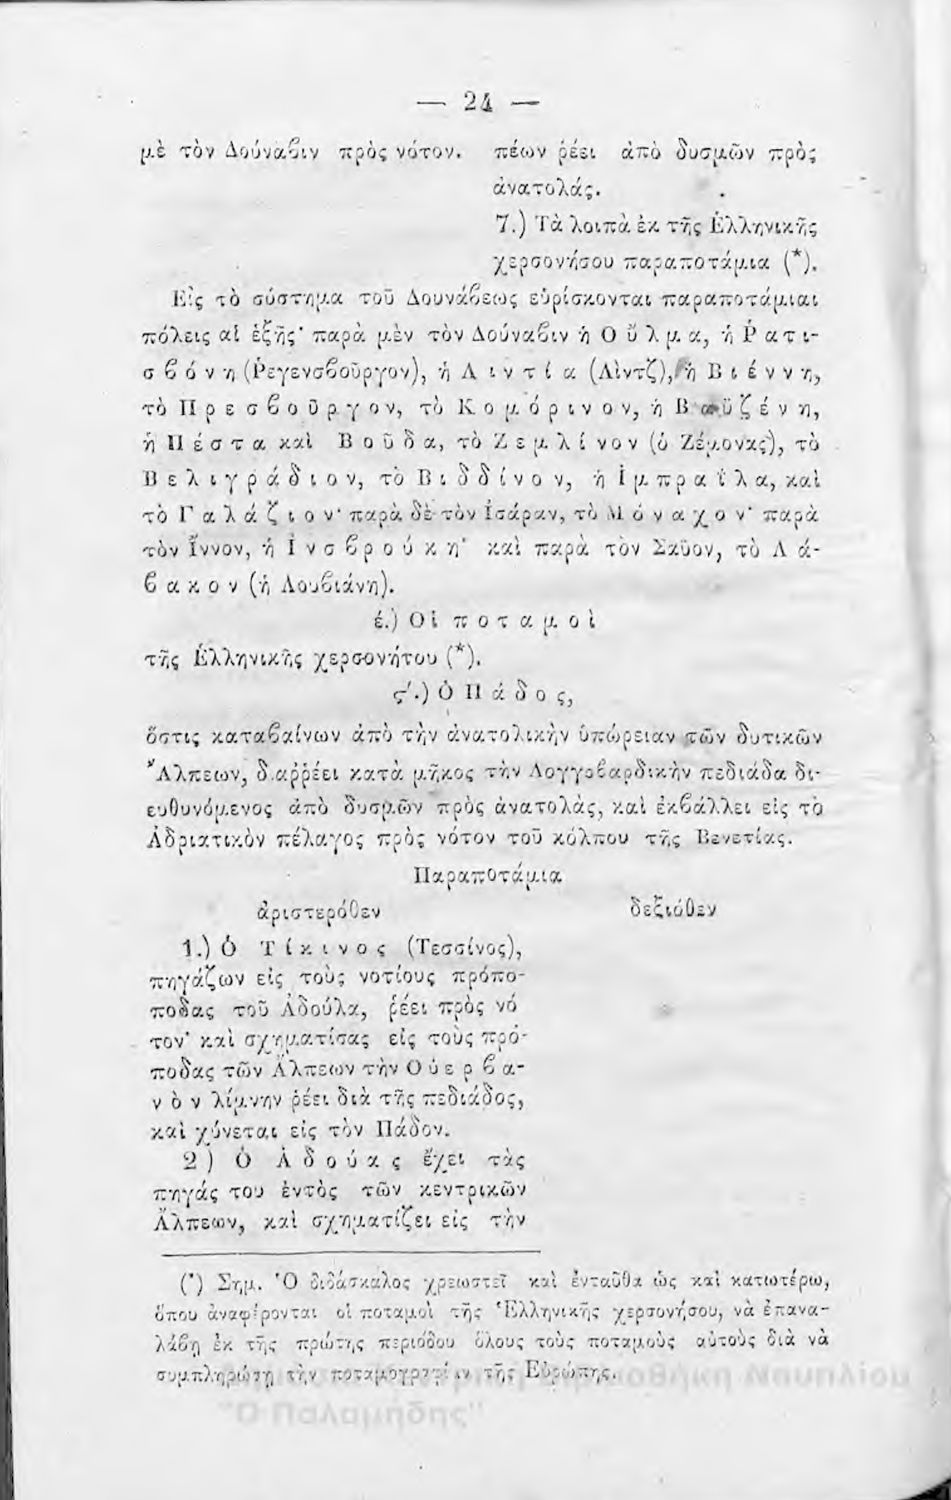 — 24 —
μὲ τὸν Δούναβιν πρὸς νότον.
πέων ῥέει ἀπὸ δυσμῶν πρὸς
ἀνατολάς.
7.) Τὰ λοιπὰ ἐκ τῆς Ἑλληνικῆς
χερσονήσου παραποτάμια (*).
Εἰς τὸ σύστημα τοῦ Δουνάβεως εὑρίσκονται παραποτάμιαι
πόλεις αἱ ἑξῆς· παρὰ μὲν τὸν Δούναβιν ἡ Οὔλμα, ἡ Ῥατι-
σβόνη (Ῥεγενσβοῦργον), ἡ Λιντία (Λὶντζ), ἡ Βιέννη,
τὸ Πρεσβοῦργον, τὸ Κομόρινον, ἡ Βαϋζένη,
ἡ Πέστα καὶ Βοῦδα, τὸ Ζεμλίνον (ὁ Ζέμονας), τὸ
Βελιγράδιον, τὸ Βιδδίνον, ἡ Ἰμπραΐλα, καὶ
τὸ Γαλάζιον· παρὰ δὲ τὸν Ἰσάραν, τὸ Μόναχον· παρὰ
τὸν Ἴννον, ἡ Ἰνσβρούκη· καὶ παρὰ τὸν Σαῦον, τὸ Λά-
βακον (ἡ Λουβιάνη).
έ.) Οἱ ποταμοὶ
τῆς Ἑλληνικῆς χερσονήτου (*).
ϛ'.) Ὁ Πάδος,
ὅστις καταβαίνων ἀπὸ τὴν ἀνατολικὴν ὑπώρειαν τῶν δυτικῶν
Ἄλπεων, διαῤῥέει κατὰ μῆκος τὴν Λογγοβαρδικὴν πεδιάδα δι-
ευθυνόμενος ἀπὸ δυσμῶν πρὸς ἀνατολὰς, καὶ ἐκβάλλει εἰς τὸ
Ἀδριατικὸν πέλαγος πρὸς νότον τοῦ κόλπου τῆς Βενετίας.
Παραποτάμια
ἀριστερόθεν
δεξιόθεν
1.) Ὁ Τίκινος (Τεσσίνος),
πηγάζων εἰς τοὺς νοτίους πρόπο-
ποδας τοῦ Ἀδούλα, ῥέει πρὸς νό
τον· καὶ σχηματίσας εἰς τοὺς πρό-
ποδας τῶν Ἄλπεων τὴν Οὐερβα-
νὸν λίμνην ῥέει διὰ τῆς πεδιάδος,
καὶ χύνεται εἰς τὸν Πάδον.
2) Ὁ Ἀδούας ἔχει τὰς
πηγάς του ἐντὸς τῶν κεντρικῶν
Ἄλπεων, καὶ σχηματίζει εἰς τὴν
(*) Σημ. Ὁ διδάσκαλος χρεωστεῖ καὶ ἐνταῦθα ὡς καὶ κατωτέρω,
ὅπου ἀναφέρονται οἱ ποταμοὶ τῆς Ἑλληνικῆς χερσονήσου, νὰ ἐπανα-
λάβῃ ἐκ τῆς πρώτης περιόδου ὅλους τοὺς ποταμοὺς αὐτοὺς διὰ νὰ
συμπληρώσῃ τὴν ποταμογραφίαν τῆς Εὐρώπης.
Βιβλιοθήκη Ναυπλίου
"Ο Παλαμήδης"